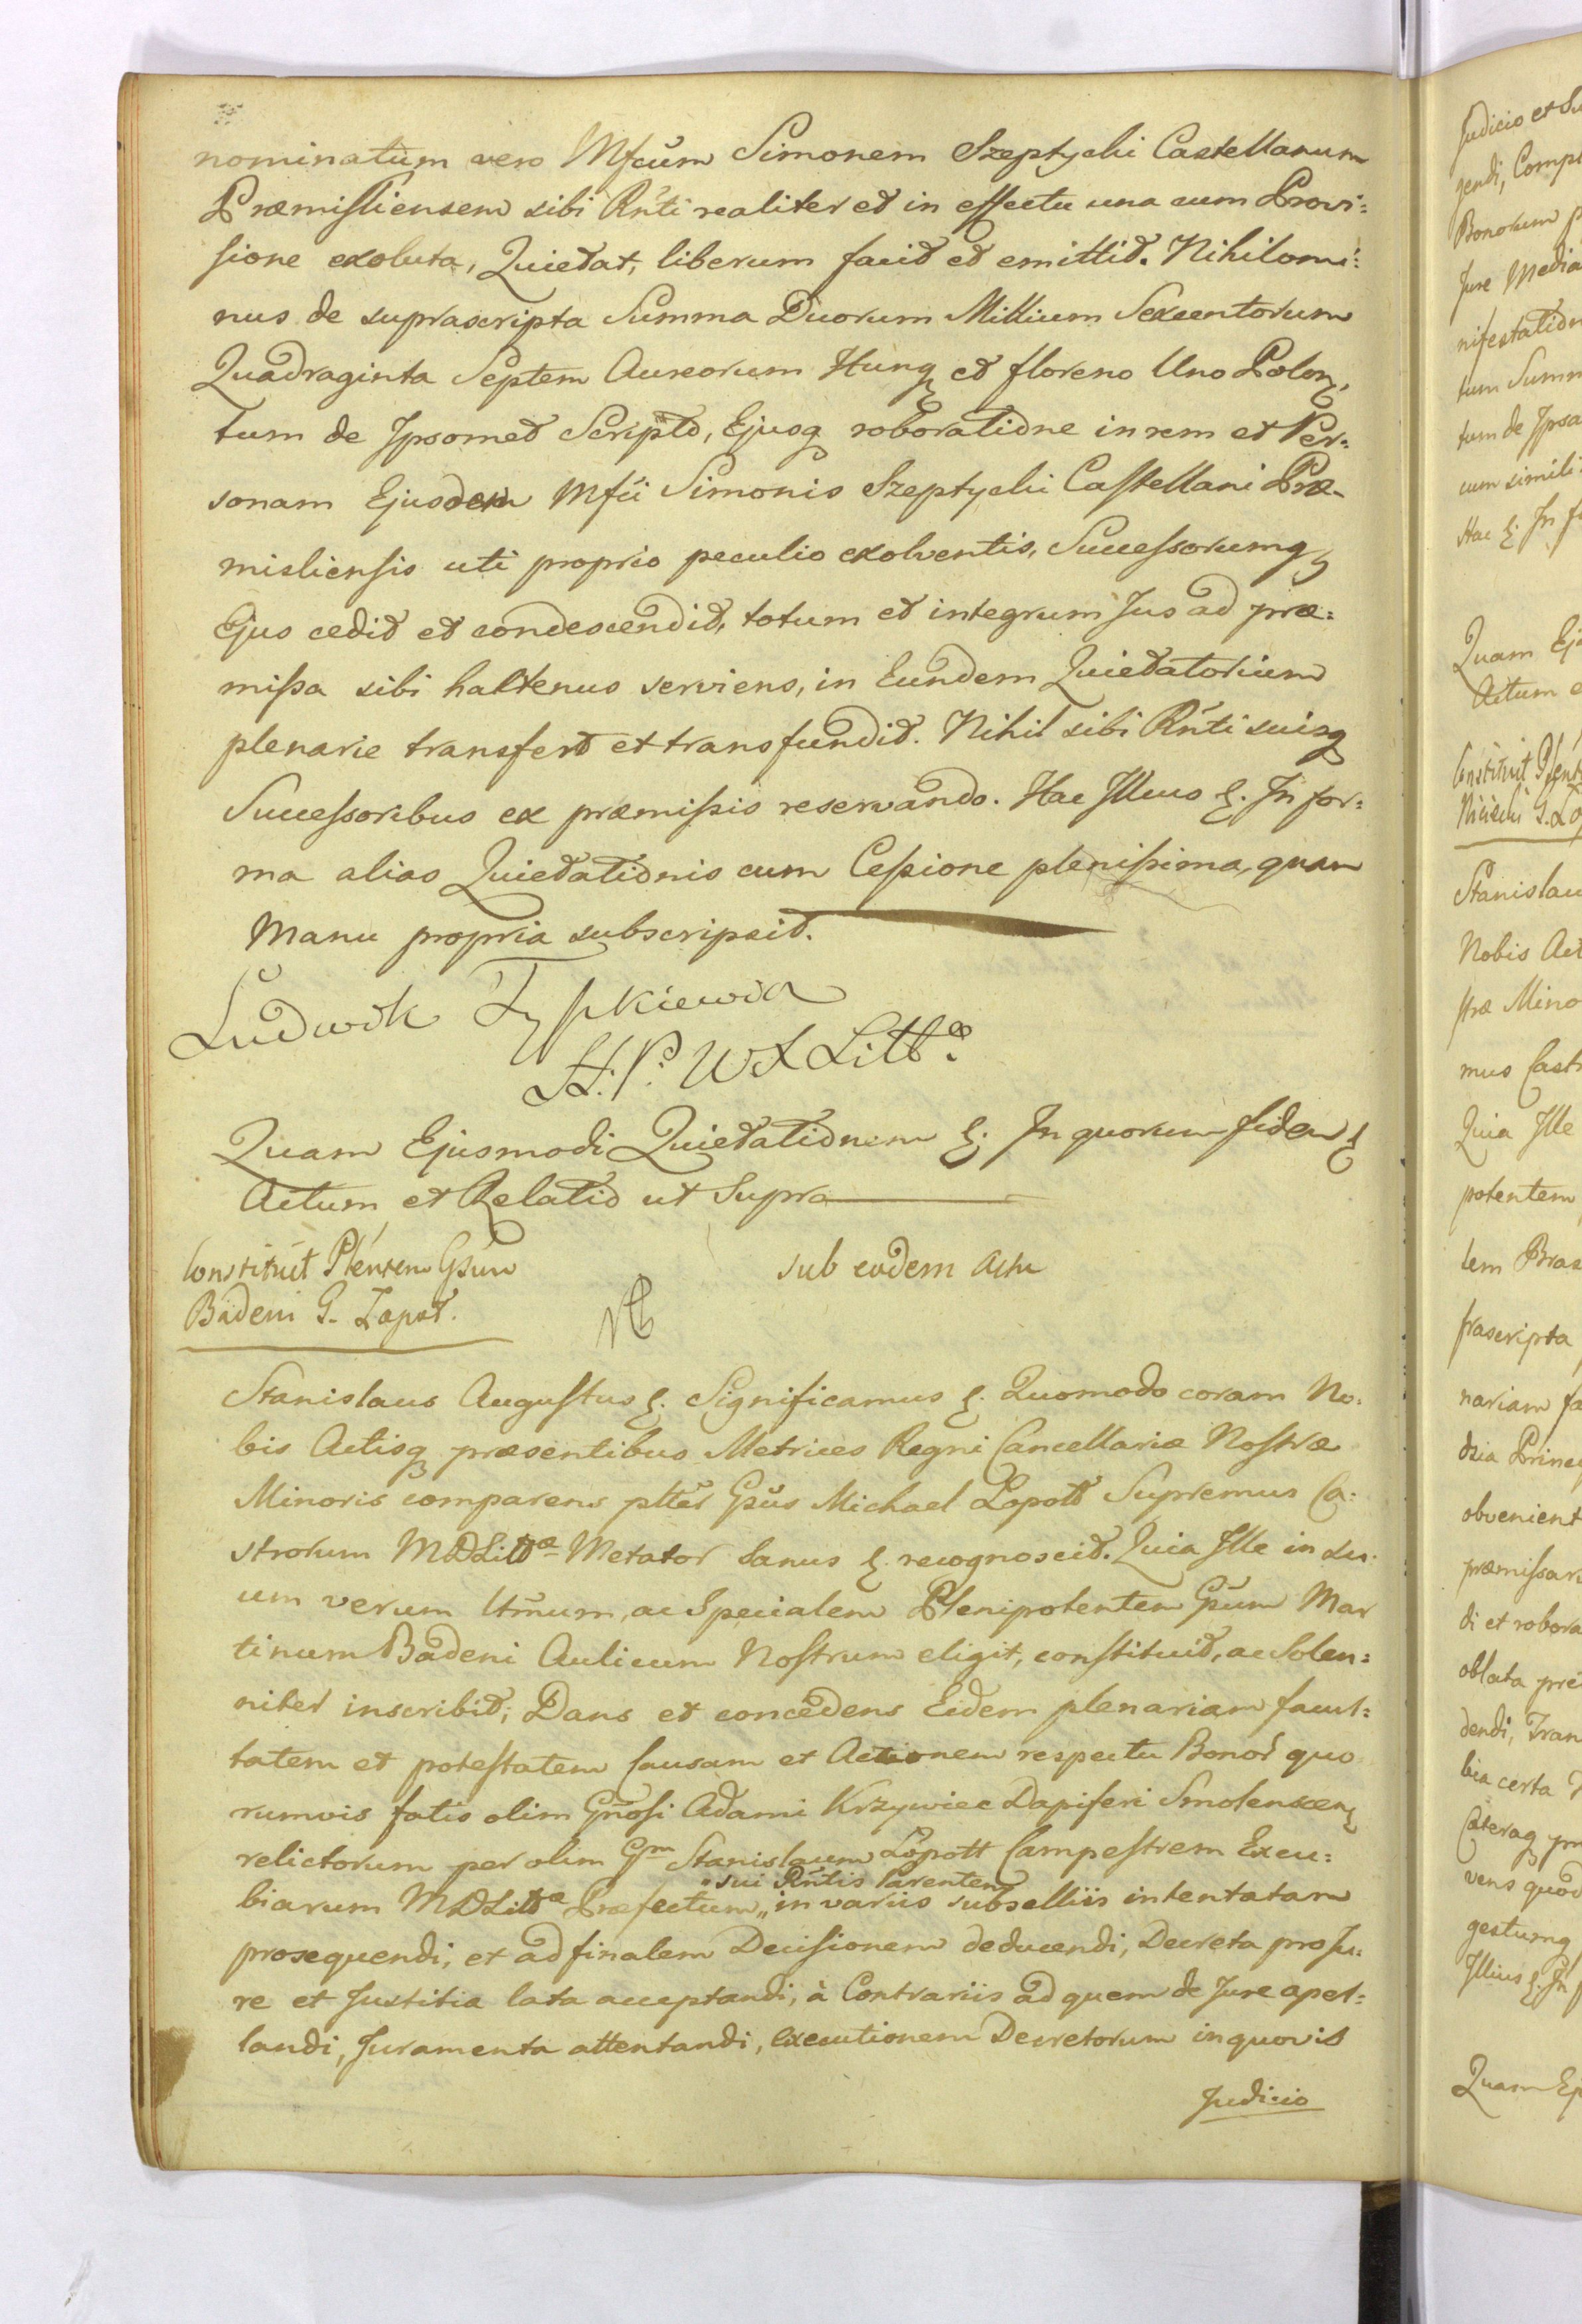 nominatum vero Mfcũm Simonem Szeptycki Castellanum
Præmisliensem sibi Rñti realiter et in effectu una cum Provi:
sione exoluta, Quietat, liberum facit et emittit. Nihilomi:
nus de suprascripta Summa Duorum Millium Sexcentorum
Quadraginta Septem Aureorum Hung et floreno Uno Polon,
tum de Ipsomet Scripto, Ejusq roboratione in rem et Per:
sonam Ejusdem Mfci Simonis Szeptycki Castellani Præ-
misliensis uti proprio peculio exolventis, Successorumq
Ejus cedit et condescendit, totum et integrum Jus ad præ:
missa sibi hactenus serviens, in Eundem Quietatorium
plenarie transfert et transfundit. Nihil sibi Rñti suisq
Successoribus ex præmissis reservando. Hac Illius &. In for:
ma alias Quietationis cum Cessione plenissima, quam
Manu propria subscripsit.
Ludwik Tyszkiewicz
H: P: W X Litt:
Quam Ejusmodi Quietationem &. In quorum fidem &
Actum et Relatio ut Supra
Constituit Pleñtem Gsũm
Badeni G. Łapot.
sub eodem Actu
Stanislaus Augustus &. Significamus &. Quomodo coram No:
bis Actisq præsentibus Metrices Regni Cancellariæ Nostræ
Minoris comparens pltẽr Gsũs Michael Łopott Supremus Ca:
strorum MDLittæ Metator sanus &. recognoscit. Quia Ille in su:
um verum Ltmum, ac Specialem Plenipotentem Gsũm Mar
tinum Badeni Aulicum Nostrum eligit, constituit, ac Solen:
niter inscribit; Dans et concedens Eidem plenariam facul:
tatem et potestatem Causam et Actionem respectu Bonor quo
rumvis fatis olim Gñosi Adami Krzywiec Dapiferi Smolenscen
relictorum per olim Gm Stanislaum Łopott Campestrem Excu:
„sui Rñtis Parentem
biarum MDLittæ Præfectum „ in variis subselliis intentatam
prosequendi, et ad finalem Decisionem deducendi, Decreta pro Ju:
re et Justitia lata acceptandi, à Contrariis ad quem de Jure apel:
landi, Juramenta attentandi, Executionem Decretorum in quovis
Judicio
Judicio et
gendi,
Bonorum
Jure Media
nifestation
tum Summ
tum de Ipsa
cum simili
Hac &. In
Quam Ej
Actum
Constituit Pleñt
Stanislau
Nobis Act
stræ Mino
mus Castr
Quia Ille
potentem
lem Bras
frascripta
nariam fa
dzia Princ
obvenient
præmissar
di et robora
oblata
dendi, Tran
bia certa
Cæteraq
vens quod
gestumq
Illius &. In
Quam Ej